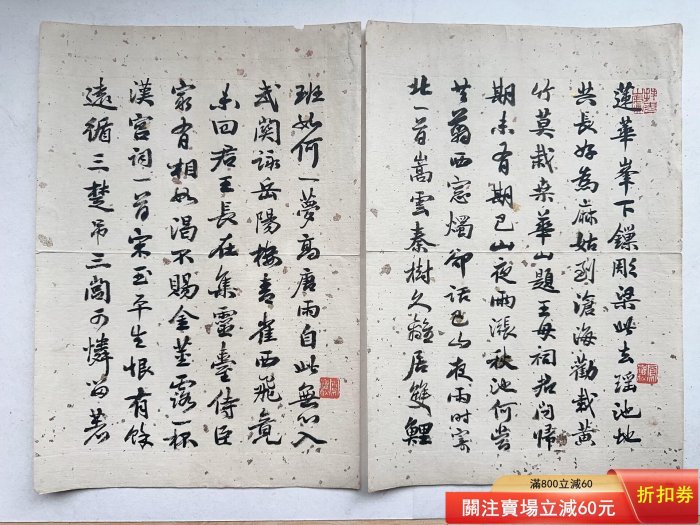 蓮華峯下鏁彫梁此去瑤池地
共長好為麻姑到滄海勸栽黃
竹莫栽桑華山題王母祠君問歸
期未有期巴山夜雨漲秋池何當
共翦西窗燭卻話巴山夜雨時寄
北一首嵩雲秦樹久離居雙鯉
班如何一夢高唐雨自此無心入
武關詠岳陽樓青雀西飛竟
未回君王長在集靈臺侍臣
最有相如渴不賜金莖露一杯
漢宮詞一首宋玉平生恨有餘
遠循三楚吊三閭可憐留著
滿800立減60
關注賣場立減60元
折扣券